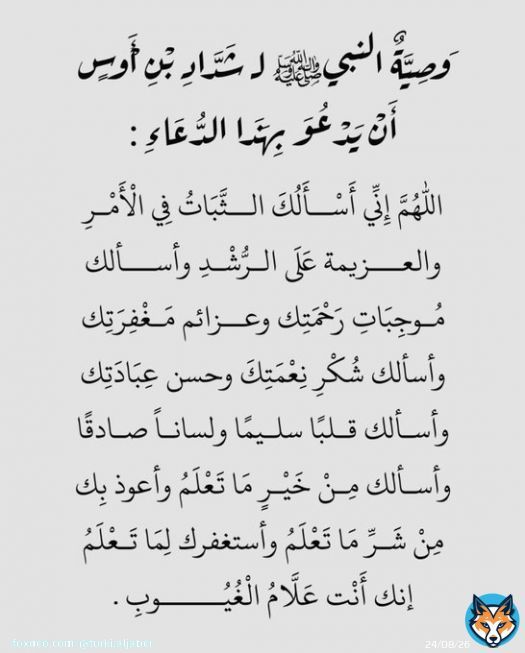 وَصِيَّةٌ النبي ﷺ لـ شَدَّادِ بْنِ أَوسٍ
أَنْ يَدْعُوَ بِهَذَا الدُّعَاءِ :
اللهُمَّ إِنِّي أَسْـــأَلُكَ الـــثَّبَاتُ فِي الْأَمْـــرِ
والعـــــزيمة عَلَى الـــرُّشْـــدِ وأســــألك
مُـــوجِبَاتِ رَحْمَتِك وعـــزائم مَـــغْفِرَتِك
وأسألك شُكْرِ نِعْمَتِكَ وحسن عِبَادَتِك
وأســألك قــلبًا سـليمًا ولسانـاً صـادقًا
وأســألك مِـنْ خَـيْـرٍ مَا تَعْلَمُ وأعوذ بِك
مِنْ شَـــرِّ مَا تَعْلَمُ وأستغفرك لِمَا تَـــعْلَمُ
إنك أَنْت عَلَّامُ الْغُيُـــــــوبِ .
foxnoo.com @turki.aljabri
24/08/26